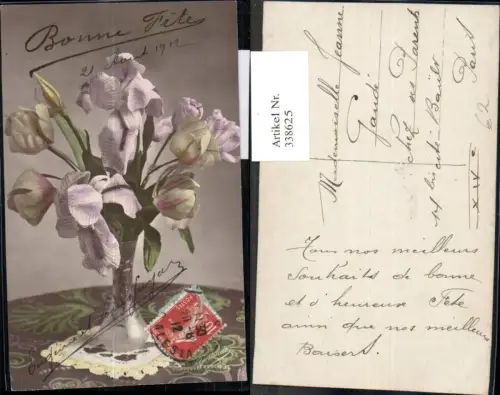 Bonne Fête
21 Août 1912
Artikel Nr.
338625
Mademoiselle Jeanne
Gaudé
chez ses Parents
14 bis cité
Paris
XIVe
62
Tous nos meilleurs
souhaits de bonne
et d'heureuse Fête
ainsi que nos meilleurs
Baisers.